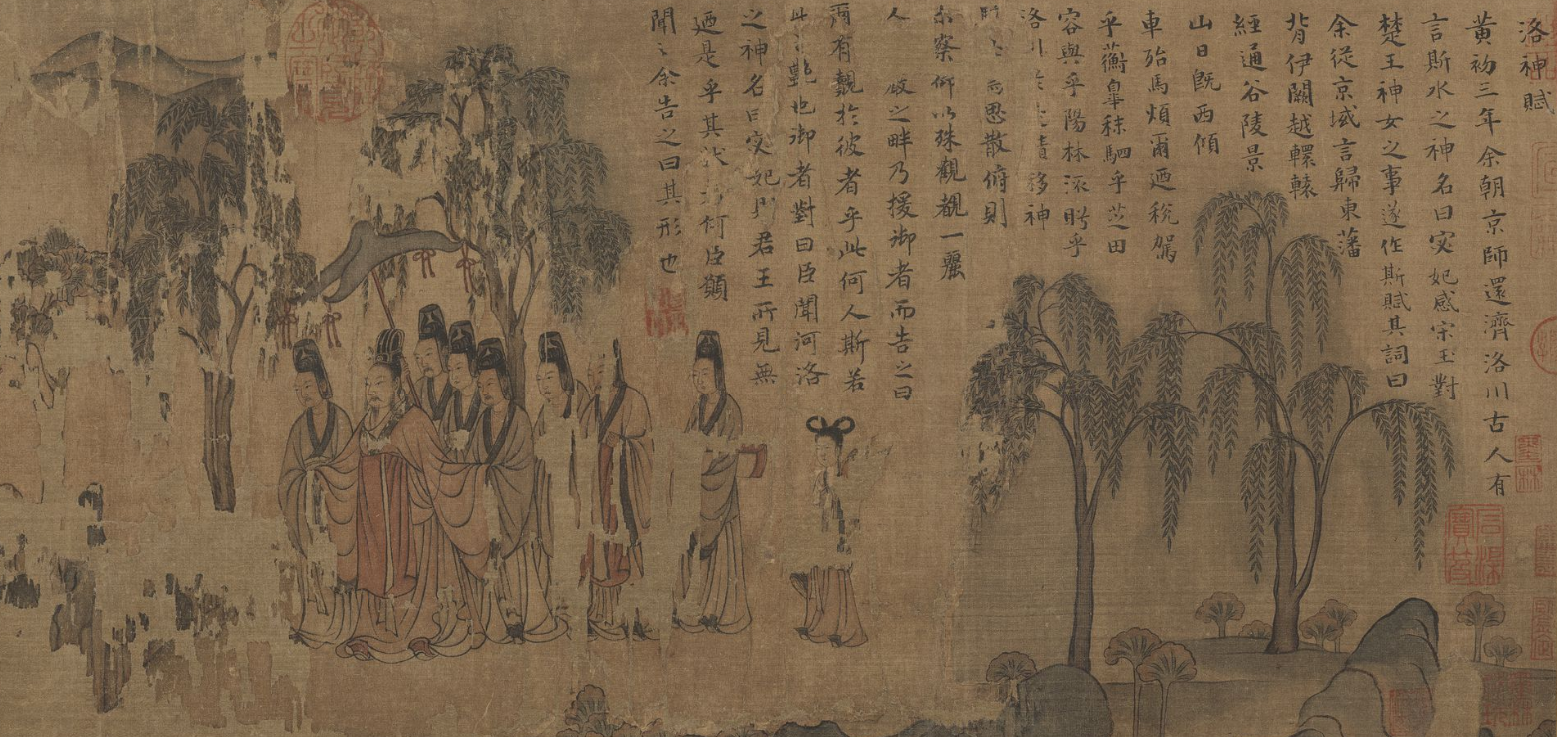 洛神賦
黃初三年余朝京師還濟洛川古人有
言斯水之神名曰宓妃感宋玉對
楚王神女之事遂作斯賦其詞曰
余從京域言歸東藩
背伊闕越轘轅
經通谷陵景
山日既西傾
車殆馬煩爾迺稅駕
乎蘅皐秣駟乎芝田
容與乎陽林流眄乎
洛川 移神
思散俯則
未察仰以殊觀覩一麗
人 之畔乃援御者而告之曰
爾有覿於彼者乎此何人斯若
此之艷也御者對曰臣聞河洛
之神名曰宓妃 君王所見無
迺是乎其狀若何臣願
聞之余告之曰其形也